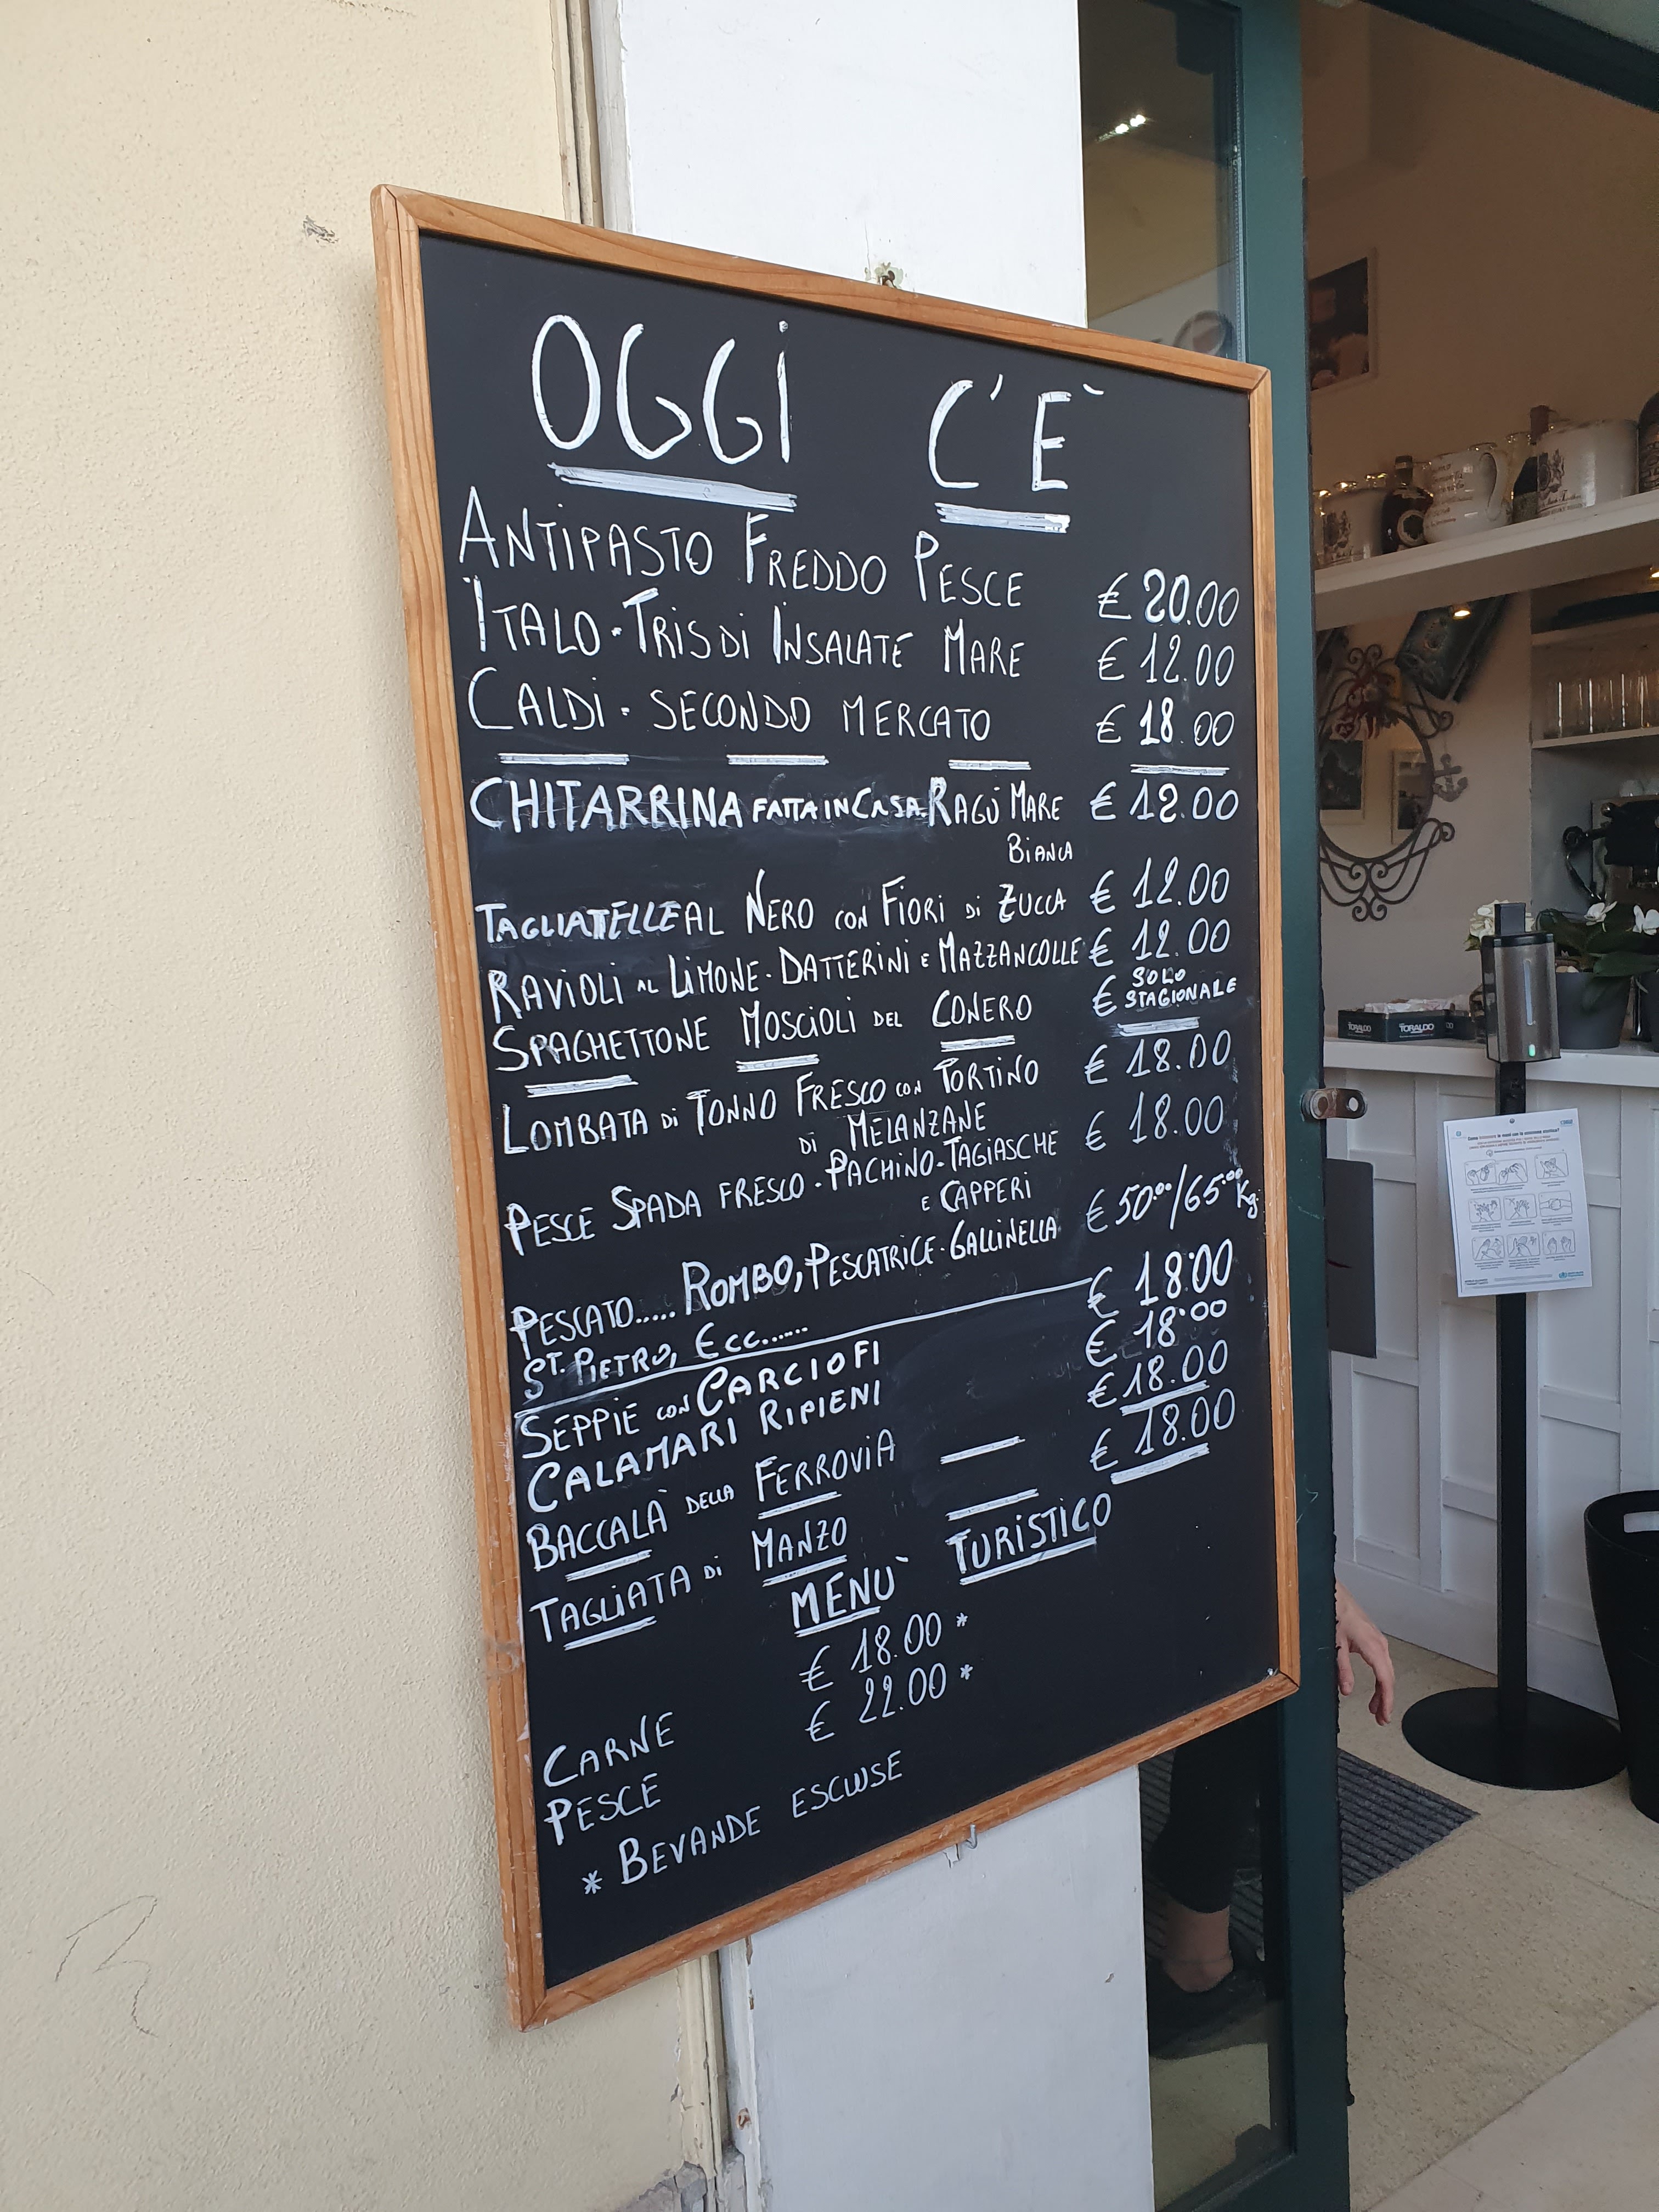 OGGI C'È
ANTIPASTO FREDDO PESCE € 20.00
ITALO · TRIS DI INSALATE MARE € 12.00
CALDI · SECONDO MERCATO € 18.00
CHITARRINA FATTA IN CASA. RAGÙ MARE € 12.00
BIANCA
TAGLIATELLE AL NERO CON FIORI DI ZUCCA € 12.00
RAVIOLI AL LIMONE · DATTERINI E MAZZANCOLLE € 12.00
SPAGHETTONE MOSCIOLI DEL CONERO € SOLO STAGIONALE
LOMBATA DI TONNO FRESCO CON TORTINO € 18.00
DI MELANZANE
PESCE SPADA FRESCO · PACHINO - TAGIASCHE € 18.00
E CAPPERI
PESCATO..... ROMBO, PESCATRICE · GALLINELLA € 50.00/65.00 Kg.
ST. PIETRO, ECC......
SEPPIE CON CARCIOFI € 18.00
CALAMARI RIPIENI € 18.00
BACCALÀ DELLA FERROVIA € 18.00
TAGLIATA DI MANZO € 18.00
MENÙ TURISTICO
CARNE € 18.00 *
PESCE € 22.00 *
* BEVANDE ESCLUSE
TORALDO